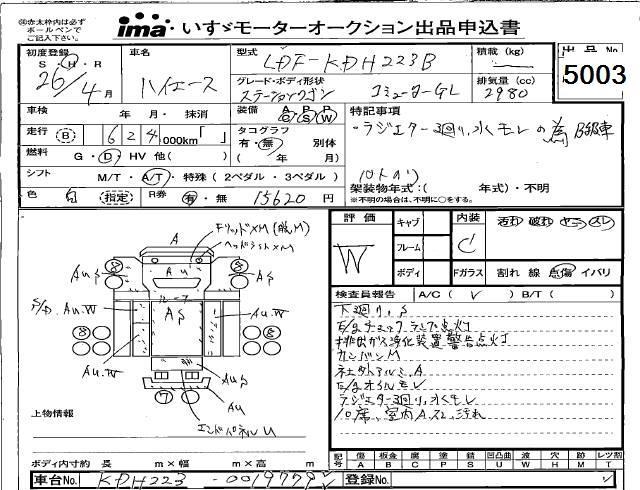 ㊟赤太枠内は必ず
ボールペンで
ご記入下さい。
ima いすゞモーターオークション出品申込書
初度登録
S・H・R
26/4月
車名
ハイエース
型式
LDF-KDH223B
積載(kg)
出品No
5003
グレード・ボディ形状
ステーションワゴン
コミューターGL
排気量(cc)
2980
車検 年・月・抹消
装備 A/C P/S P/W
特記事項
走行 (B) 624,000km「 」
タコグラフ
有・無 別体
( 年/ 月)
・ラジエター廻り、水くモレの為 B部車
燃料 G・D・HV 他( )
シフト M/T・A/T・特殊(2ペダル・3ペダル)
10人のり
架装物年式:( 年式)・不明
※不明の場合は、不明に○をする。
色 白 (指定) R券 有・無 15620 円
評価
W
キャブ
フレーム
ボディ
内装
C
Fガラス
汚れ 破れ ヤニ スレ
割れ 線 点傷 イバリ
A
ドリッドXM(脱,M)
ヘッドライトXM
AuS
S/D.Au.W
Au.W
ルーフ
AS
Au
エンドパネルU
検査員報告 A/C( ✓ ) B/T( )
下廻り、S
E/gチェックランプ点灯
排出ガス浄化装置警告点灯
カンバンM
社外アルミ.A
E/gオイルモレ
ラジエター廻り、水くモレ
10席、室内A.スレ,汚れ
上物情報
記号 傷 A 板金 B 腐 C 塗 P 錆 S 凹凸曲 U 波 W 穴 H 跡 M レンズ割 T
ボディ内寸約 長 m×幅 m×高 m
車台No. KDH223-0019779
登録No.